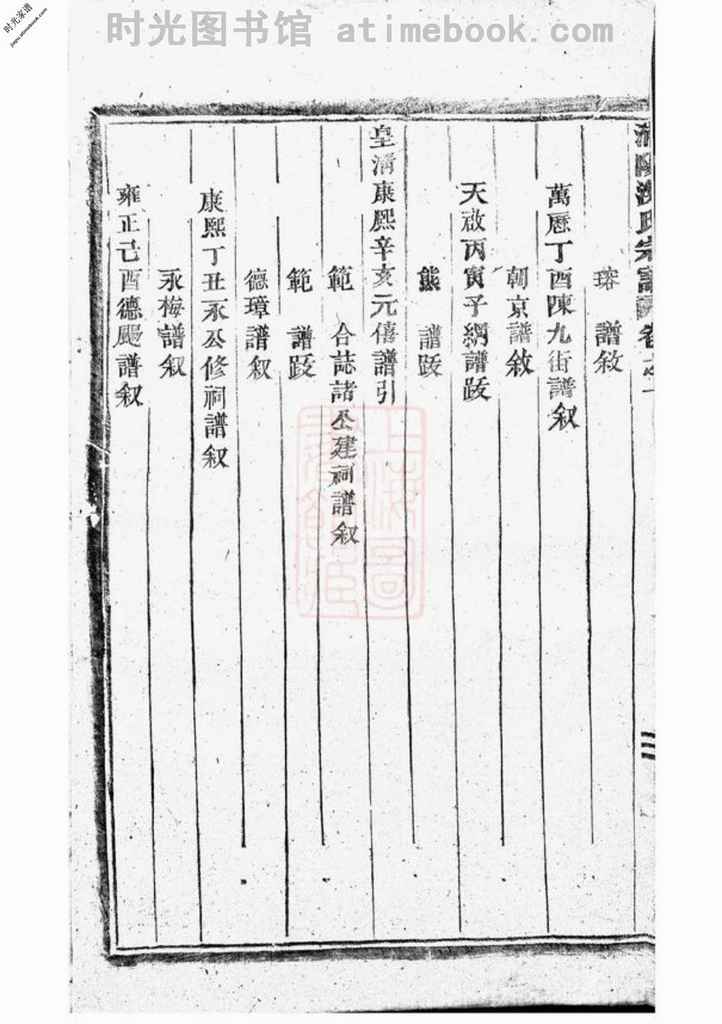 时光图书馆 atimebook.com
时光家谱
瑢 譜敘
萬曆丁酉陳九街譜叙
朝京譜敘
天啟丙寅子綱譜跋
熊 譜跋
皇清康熙辛亥元僖譜引
範 合誌諸公建祠譜叙
範 譜跋
德璋譜叙
康熙丁丑永公修祠譜叙
永梅譜叙
雍正己酉德颺譜叙